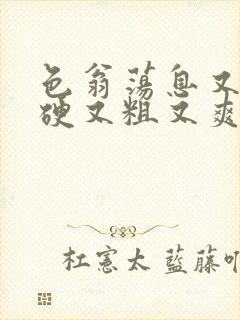 色翁荡息又
硬又粗又爽
杜宪太 蓝藤吖